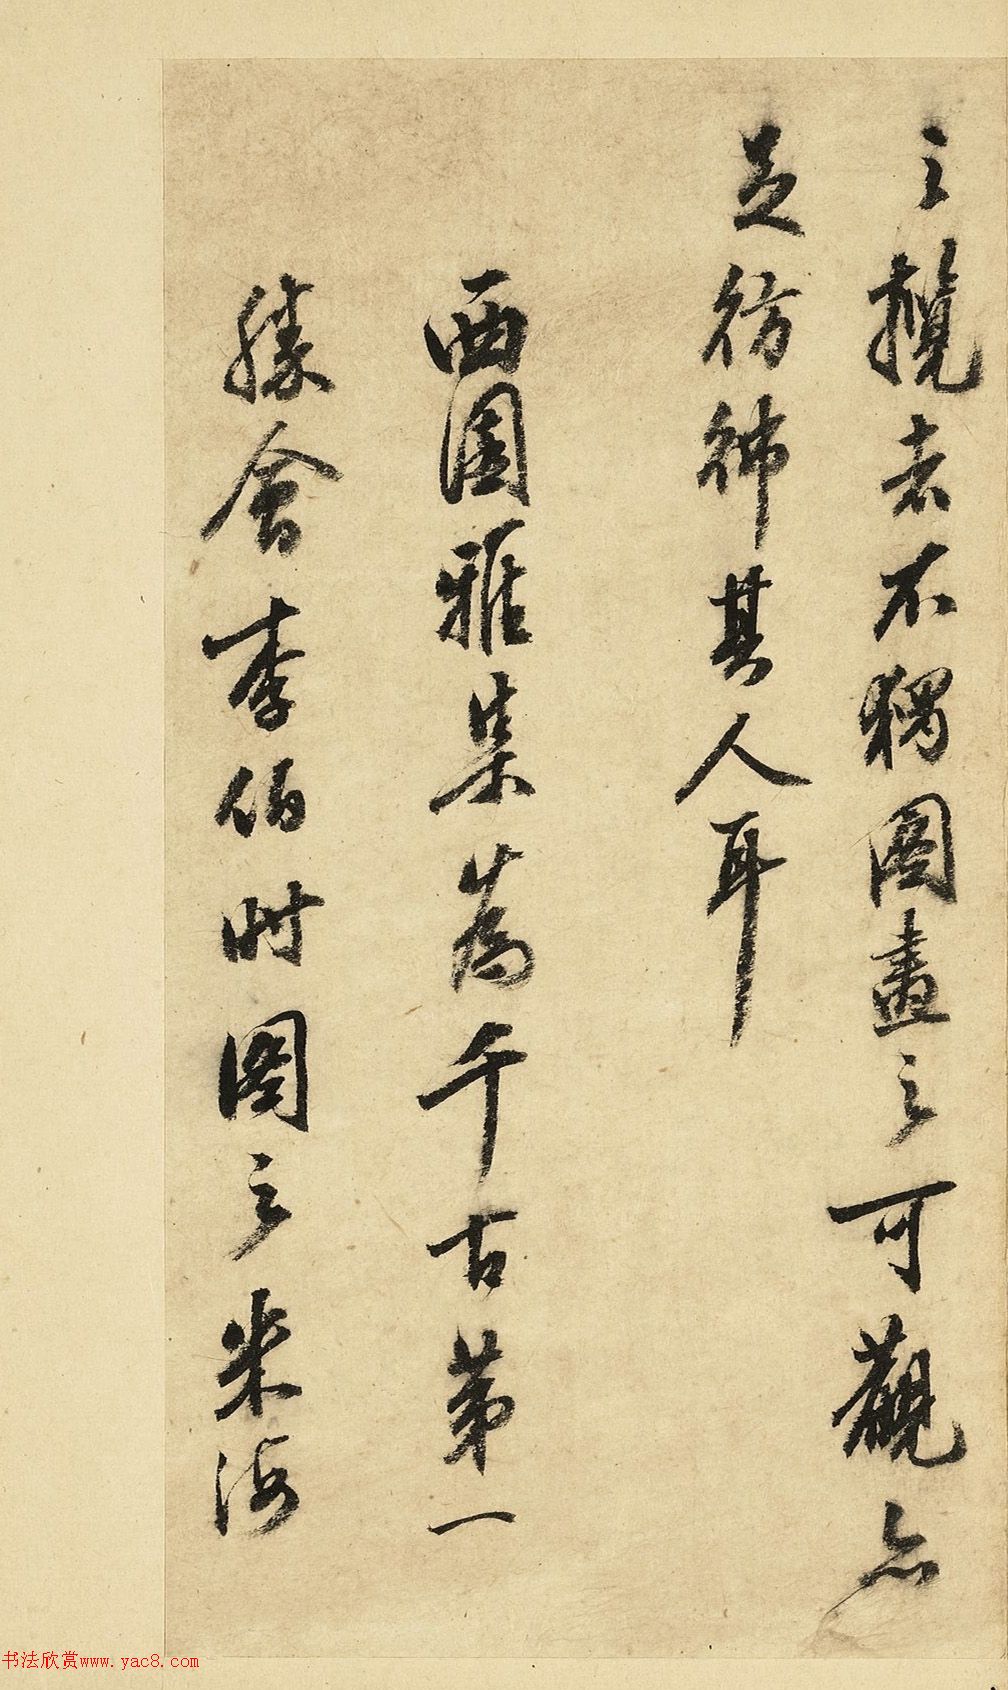 之攬者不獨圖畫之可觀亦
足彷彿其人耳
西園雅集為千古第一
勝會李伯時圖之米海
书法欣赏www.yac8.com